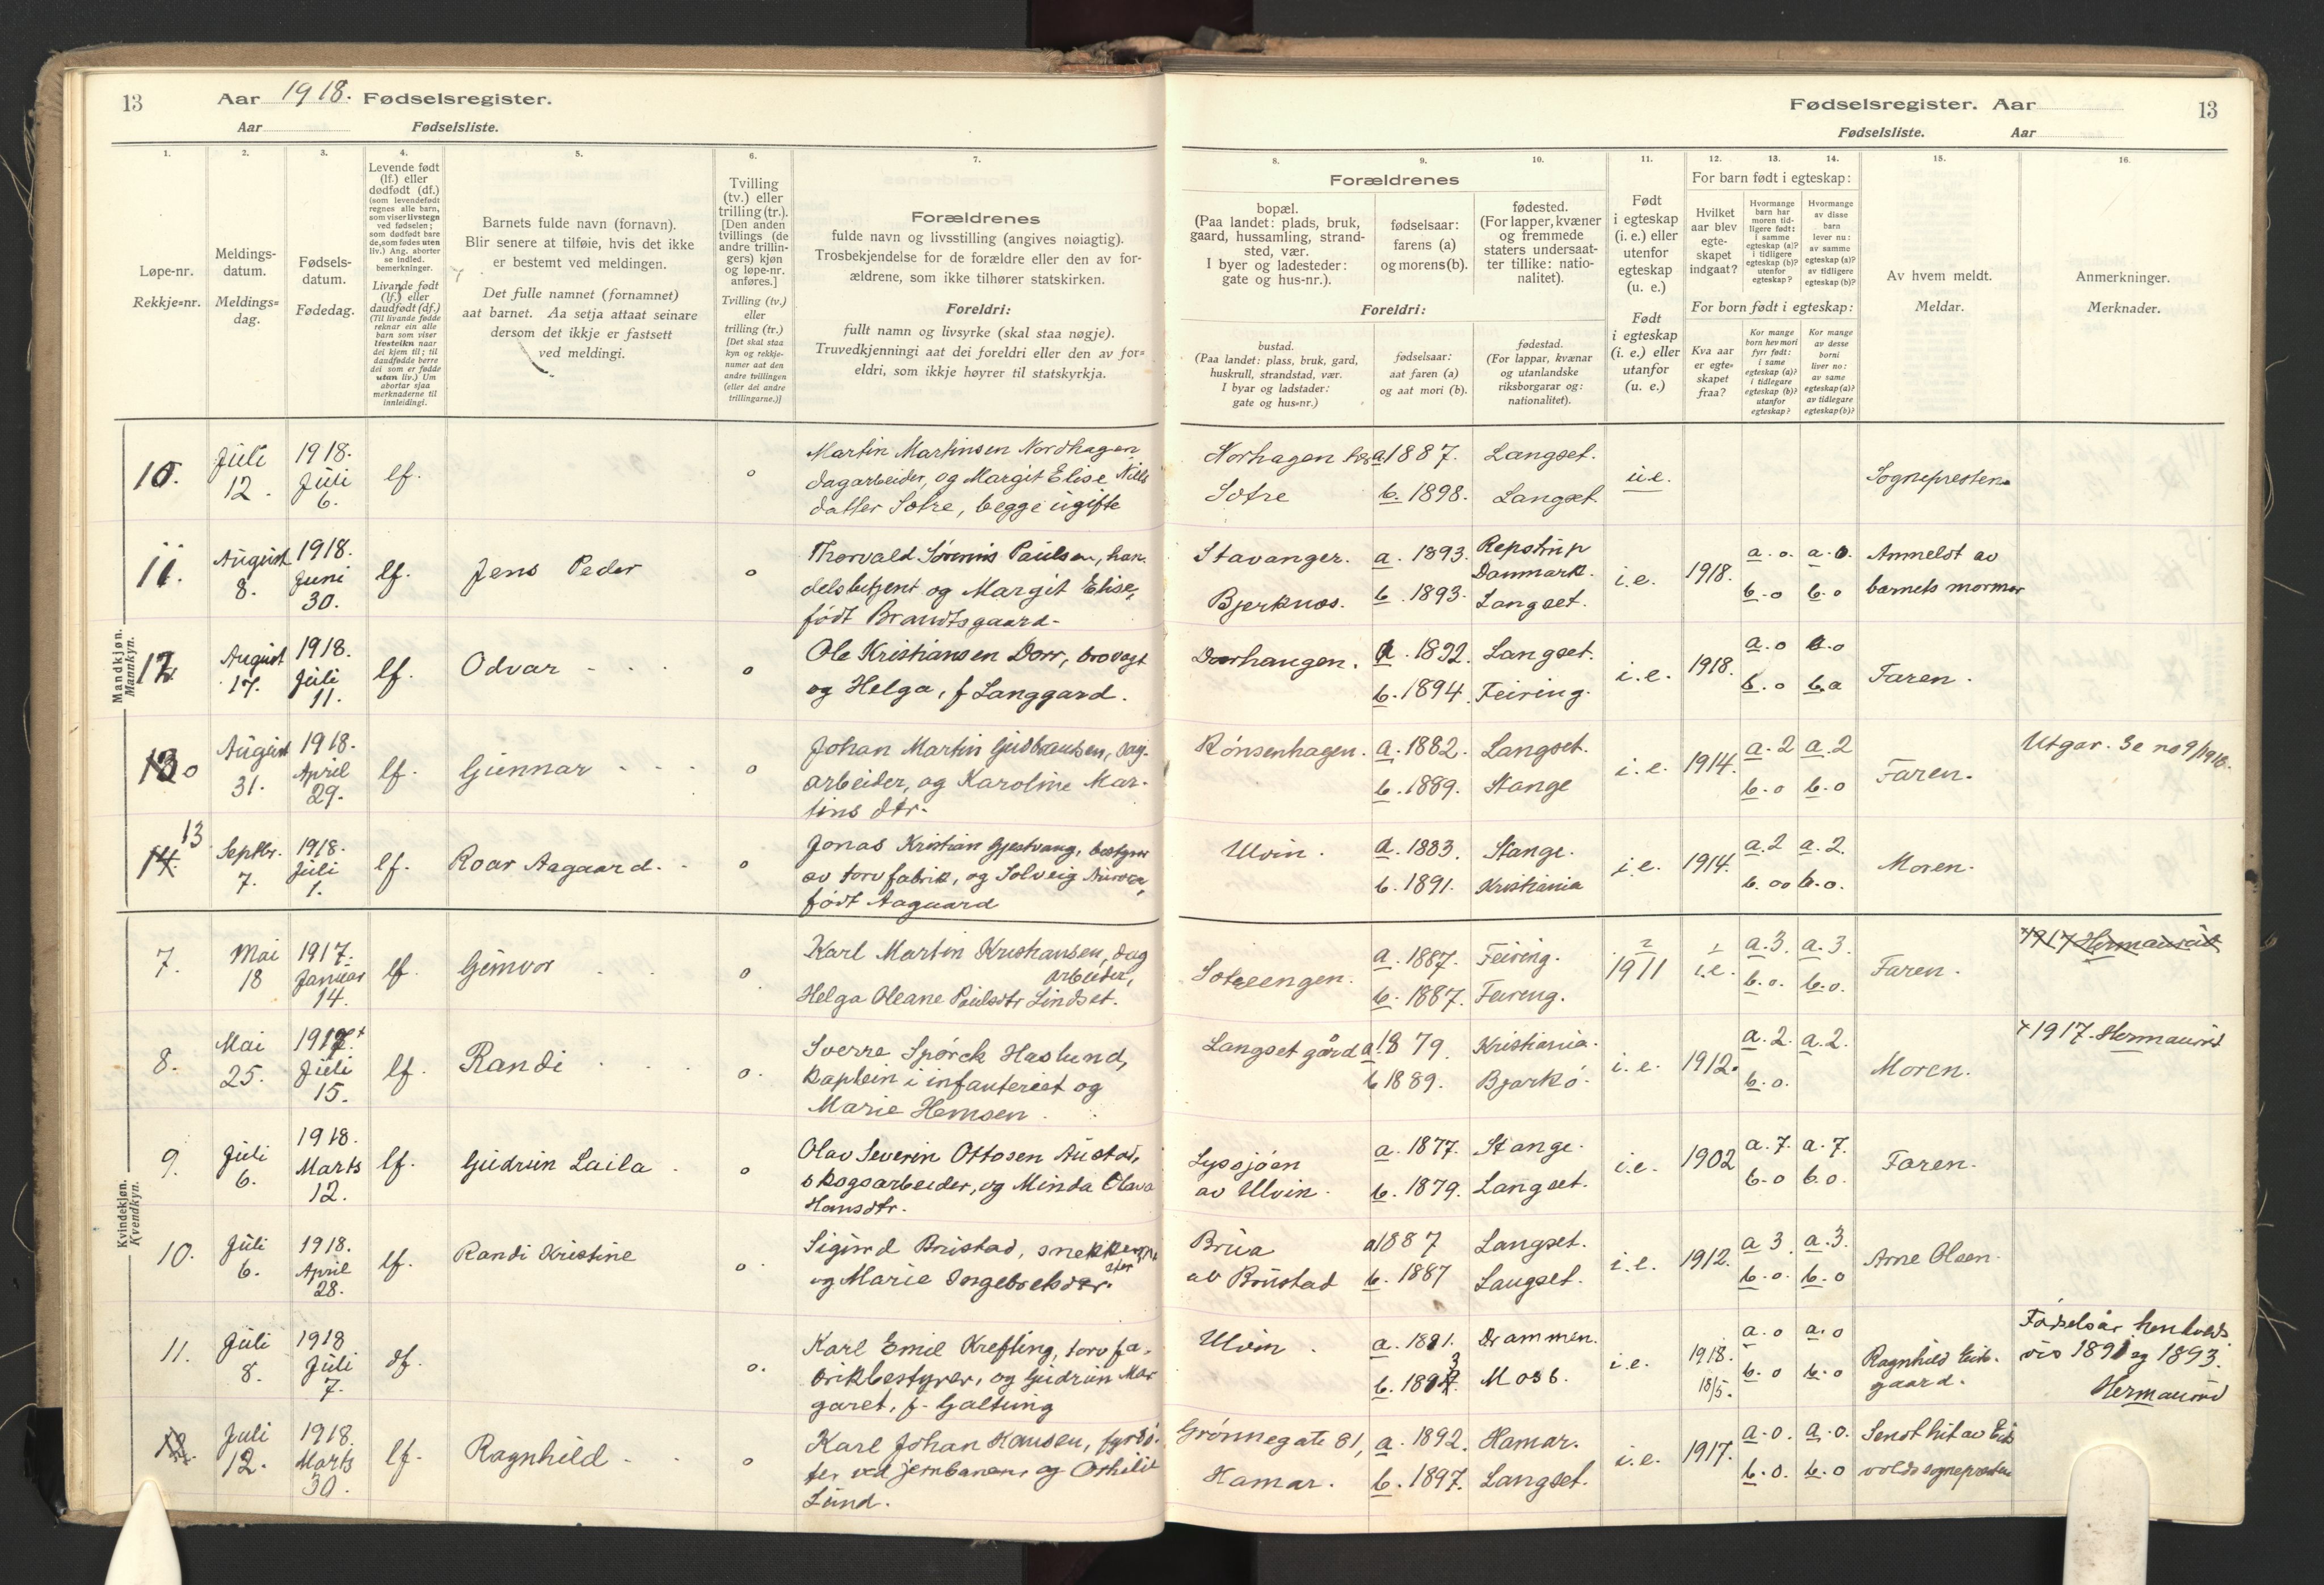 13
Aar 1918. Fødselsregister.
Aar
Fødselsliste.
1.
Løpe-nr.
Rekkje=nr.
2.
Meldings-
datum.
Meldings=
dag.
3.
Fødsels-
datum.
Fødedag.
4.
Levende født
(lf.) eller
dødfødt (df.)
(som levendefødt
regnes alle barn,
som viser livstegn
ved fødselen;
som dødfødt bare
de, som fødes uten
liv.) Ang. aborter
se indled.
bemerkninger.
Livande født
(lf.) eller
daudfødt (df.)
(Til livande fødde
reknar ein alle
born som viser
livsteikn naar
dei kjem til; til
daudfødde berre
dei som er fødde
utan liv.) Um
abortar sjaa
merknaderne til
innleidingi.
5.
Barnets fulde navn (fornavn).
Blir senere at tilføie, hvis det ikke
er bestemt ved meldingen.
Det fulle namnet (fornamnet)
aat barnet. Aa setja attaat seinare
dersom det ikkje er fastsett
ved meldingi.
6.
Tvilling
(tv.) eller
trilling (tr.).
[Den anden
tvillings (de
andre trillin-
gers) kjøn
og løpe-nr.
anføres.]
Tvilling (tv.)
eller
trilling (tr.)
[Det skal staa
kyn og rekkje-
numer aat den
andre tvillingen
(eller dei andre
trillingarne.)]
7.
Forældrenes
fulde navn og livsstilling (angives nøiagtig).
Trosbekjendelse for de forældre eller den av for-
ældrene, som ikke tilhører statskirken.
Foreldri:
fullt namn og livsyrke (skal staa nøgje).
Truvedkjenningi aat dei foreldri eller den av for=
eldri, som ikkje høyrer til statskyrkja.
Fødselsregister. Aar
13
Fødselsliste.
Aar
8.
9.
10.
Forældrenes
bopæl.
(Paa landet: plads, bruk,
gaard, hussamling, strand-
sted, vær.
I byer og ladesteder:
gate og hus-nr.).
fødselsaar:
farens (a)
og morens (b).
fødested.
(For lapper, kvæner
og fremmede
staters undersaat-
ter tillike: natio-
nalitet).
Foreldri:
bustad.
(Paa landet: plass, bruk, gard,
huskrull, strandstad, vær.
I byar og ladstader:
gate og hus=nr.)
fødselsaar:
aat faren (a)
og aat mori (b).
fødestad.
(For lappar, kvænar
og utanlandske
riksborgarar og:
nationalitet).
11.
Født
i egteskap
(i. e.) eller
utenfor
egteskap
(u. e.)
Født
i egteskap
(i. e.) eller
utanfor
(u. e.)
12.
13.
14.
For barn født i egteskap:
Hvilket
aar blev
egte-
skapet
indgaat?
Hvormange
barn har
moren tid-
ligere født:
i samme
egteskap (a)?
i tidligere
egteskap (b)?
utenfor
egteskap?
Hvormange
av disse
barn
lever nu:
av samme
egteskap (a)?
av tidligere
egteskap (b)?
For born født i egteskap:
Kva aar
er egte-
skapet
fraa?
Kor mange
born hev mori
fyrr født:
i same
egteskap (a)?
i tidlegare
egteskap (b)?
utanfor
egteskap?
Kor mange
av desse
borni
liver no:
av same
egteskap (a)?
av tidlegare
egteskap (b)?
15.
Av hvem meldt.
Meldar.
16.
Anmerkninger.
Merknader.
Mandkjøn.
Mannkyn.
10.
Juli
12.
1918.
Juli
6.
lf.
o
Martin Martinsen Nordhagen
dagarbeider, og Margit Elise Niels
datter Sotre, begge ugifte
Norhagen
Sotre
a 1887.
b. 1898.
Langset.
Langset
u.e.
Sognepresten
11.
August
8.
1918.
Juni
30.
lf.
Jens Peder
o
Thorvald Paulsen, han
delsbetjent og Margit Elise,
født Brandtsgaard
Stavanger.
Bjerknæs.
a. 1893.
b. 1893.
Repstrup
Danmark.
Langset.
i.e.
1918.
a. o.
b. o
a. o.
b. o
Anmeldt av
barnets mormor
12
August
17.
1918.
Juli
11.
lf.
Odvar
o
Ole Kristiansen Dorr, brovagt
og Helga, f Langgard.
Dorrhaugen.
a. 1892.
b. 1894.
Langset.
Feiring.
i.e.
1918.
a. o
b. o
a. o
b. o
Faren.
13
August
31.
1918.
April
29.
lf.
Gunnar
o
Johan Martin Gudbrandsen, dag-
arbeider, og Karoline Mar-
tins dtr.
Rønsenhagen.
a. 1882.
b. 1889.
Langset.
Stange
i.e.
1914.
a. 2
b. o
a. 2
b. o
Faren.
Utgar. Se no 9/1918.
13
14.
Septbr.
7.
1918.
Juli
1.
lf.
Roar Aagaard.
o
Jonas Kristian Gjestvang, bestyrer
av torvfabrik, og Solveig Aurora,
født Aagaard
Ulvin.
a. 1883.
b. 1891.
Stange.
Kristiania
i.e.
1914.
a. 2
b. oo
a. 2.
b. o.
Moren.
Kvindekjøn.
Kvendkyn.
7.
Mai
18
1917.
Januar
14.
lf.
Gunvor
o
Karl Martin Kristiansen, dag
arbeider,
Helga Oleane Paulsdtr Lindset.
Sotreengen.
a. 1887.
b. 1887.
Feiring.
Feiring.
2
1911
1
i.e.
a. 3.
b. o.
a. 3.
b. o.
Faren.
+1917 Hermansrud
8.
Mai
25.
1917.+
Juli
15.
lf.
Randi
o.
Sverre Spørck Haslund,
kaptein i infanteriet og
Marie Hemsen
Langset gård
a 1879.
b 1889.
Kristiania.
Bjarkø.
i.e.
1912.
a. 2.
b. o.
a. 2.
Moren.
+ 1917. Hermansrud
9.
Juli
6.
1918.
Marts
12.
lf.
Gudrun Laila
o
Olav Severin Ottosen Austad,
skogsarbeider, og Minda Olava
Hansdtr.
Lyssjøen
av Ulvin.
a. 1877.
b. 1879.
Stange.
Langset.
i.e.
1902
a. 7.
b. o
a. 7.
b. o.
Faren.
10.
Juli
6.
1918.
April
28.
lf.
Randi Kristine
o.
Sigurd Brustad, snekker
og Marie Ingeborts dtr.
Brua
av Brustad
a 1887
b. 1887
Langset.
Langset.
i.e.
1912.
a 3
b. o.
a. 3.
b. o
Arne Olsen.
11.
Juli
8.
1918
Juli
7.
df.
o.
Karl Emil Krefting, torvfa-
brikbestyrer, og Gudrun Mar
garet, f. Galtung
Ulvin.
a. 1891.
3
b. 1894.
Drammen.
Moss.
i.e.
1918.
18/5.
a. o
b. o
a. o
b. o
Ragnhild Eids-
gaard.
Fødselsår henholds
vis 1891 og 1893.
Hermansrud
12.
Juli
12.
1918.
Marts
30.
lf.
Ragnhild
o
Karl Johan Hansen, fyrbø-
ter ved jernbanen og Othilie
Lund.
Grønnegate 81,
Hamar.
a. 1892.
b. 1897.
Hamar.
Langset.
i.e.
1917.
a. o.
b. o.
a. o.
b. o
Sendt hit av Eids
volds sogneprest